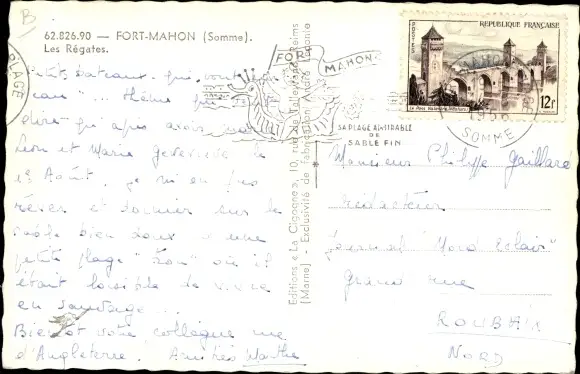 62.826.90 — FORT-MAHON (Somme).
Les Régates.
B
PLAGE
"Petits bateaux qui vont
eau" ... thème
dire qu'après avoir
Léon et Marie Geneviève le
1er Août, je suis en
rêver et dormir sur le
sable bien doux d'une
petite plage "trou" où il
était loisible de vivre
en sauvage...
Bientôt votre collègue me
d'Angleterre. Amitiés Marthe
Editions « La Cigogne », 10, rue de Reims
(Marne) - Exclusivité de fabrication
FORT MAHON
SA PLAGE ADMIRABLE
DE
SABLE FIN
POSTES
REPUBLIQUE FRANÇAISE
Le Pont Valentré Cahors
12F
1956
SOMME
Monsieur Philippe Gaillard
rédacteur
journal "Nord Eclair"
Grand rue
ROUBAIX
NORD